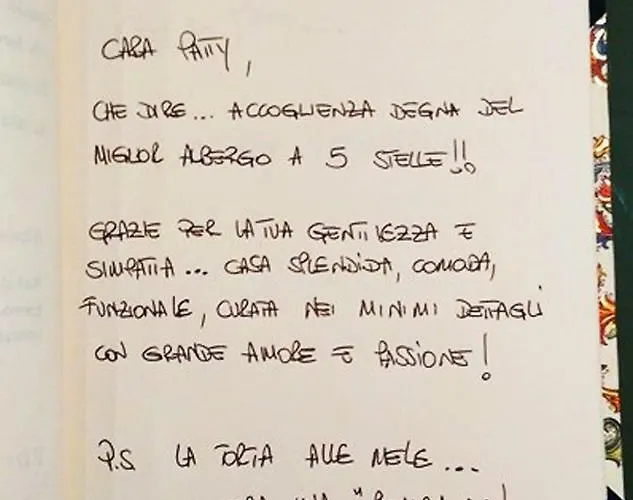 CARA PATTY,
CHE DIRE... ACCOGLIENZA DEGNA DEL
MIGLIOR ALBERGO A 5 STELLE!!
GRAZIE PER LA TUA GENTILEZZA E
SIMPATIA... CASA SPLENDIDA, COMODA,
FUNZIONALE, CURATA NEI MINIMI DETTAGLI
CON GRANDE AMORE E PASSIONE!
P.S LA TORTA ALLE MELE...